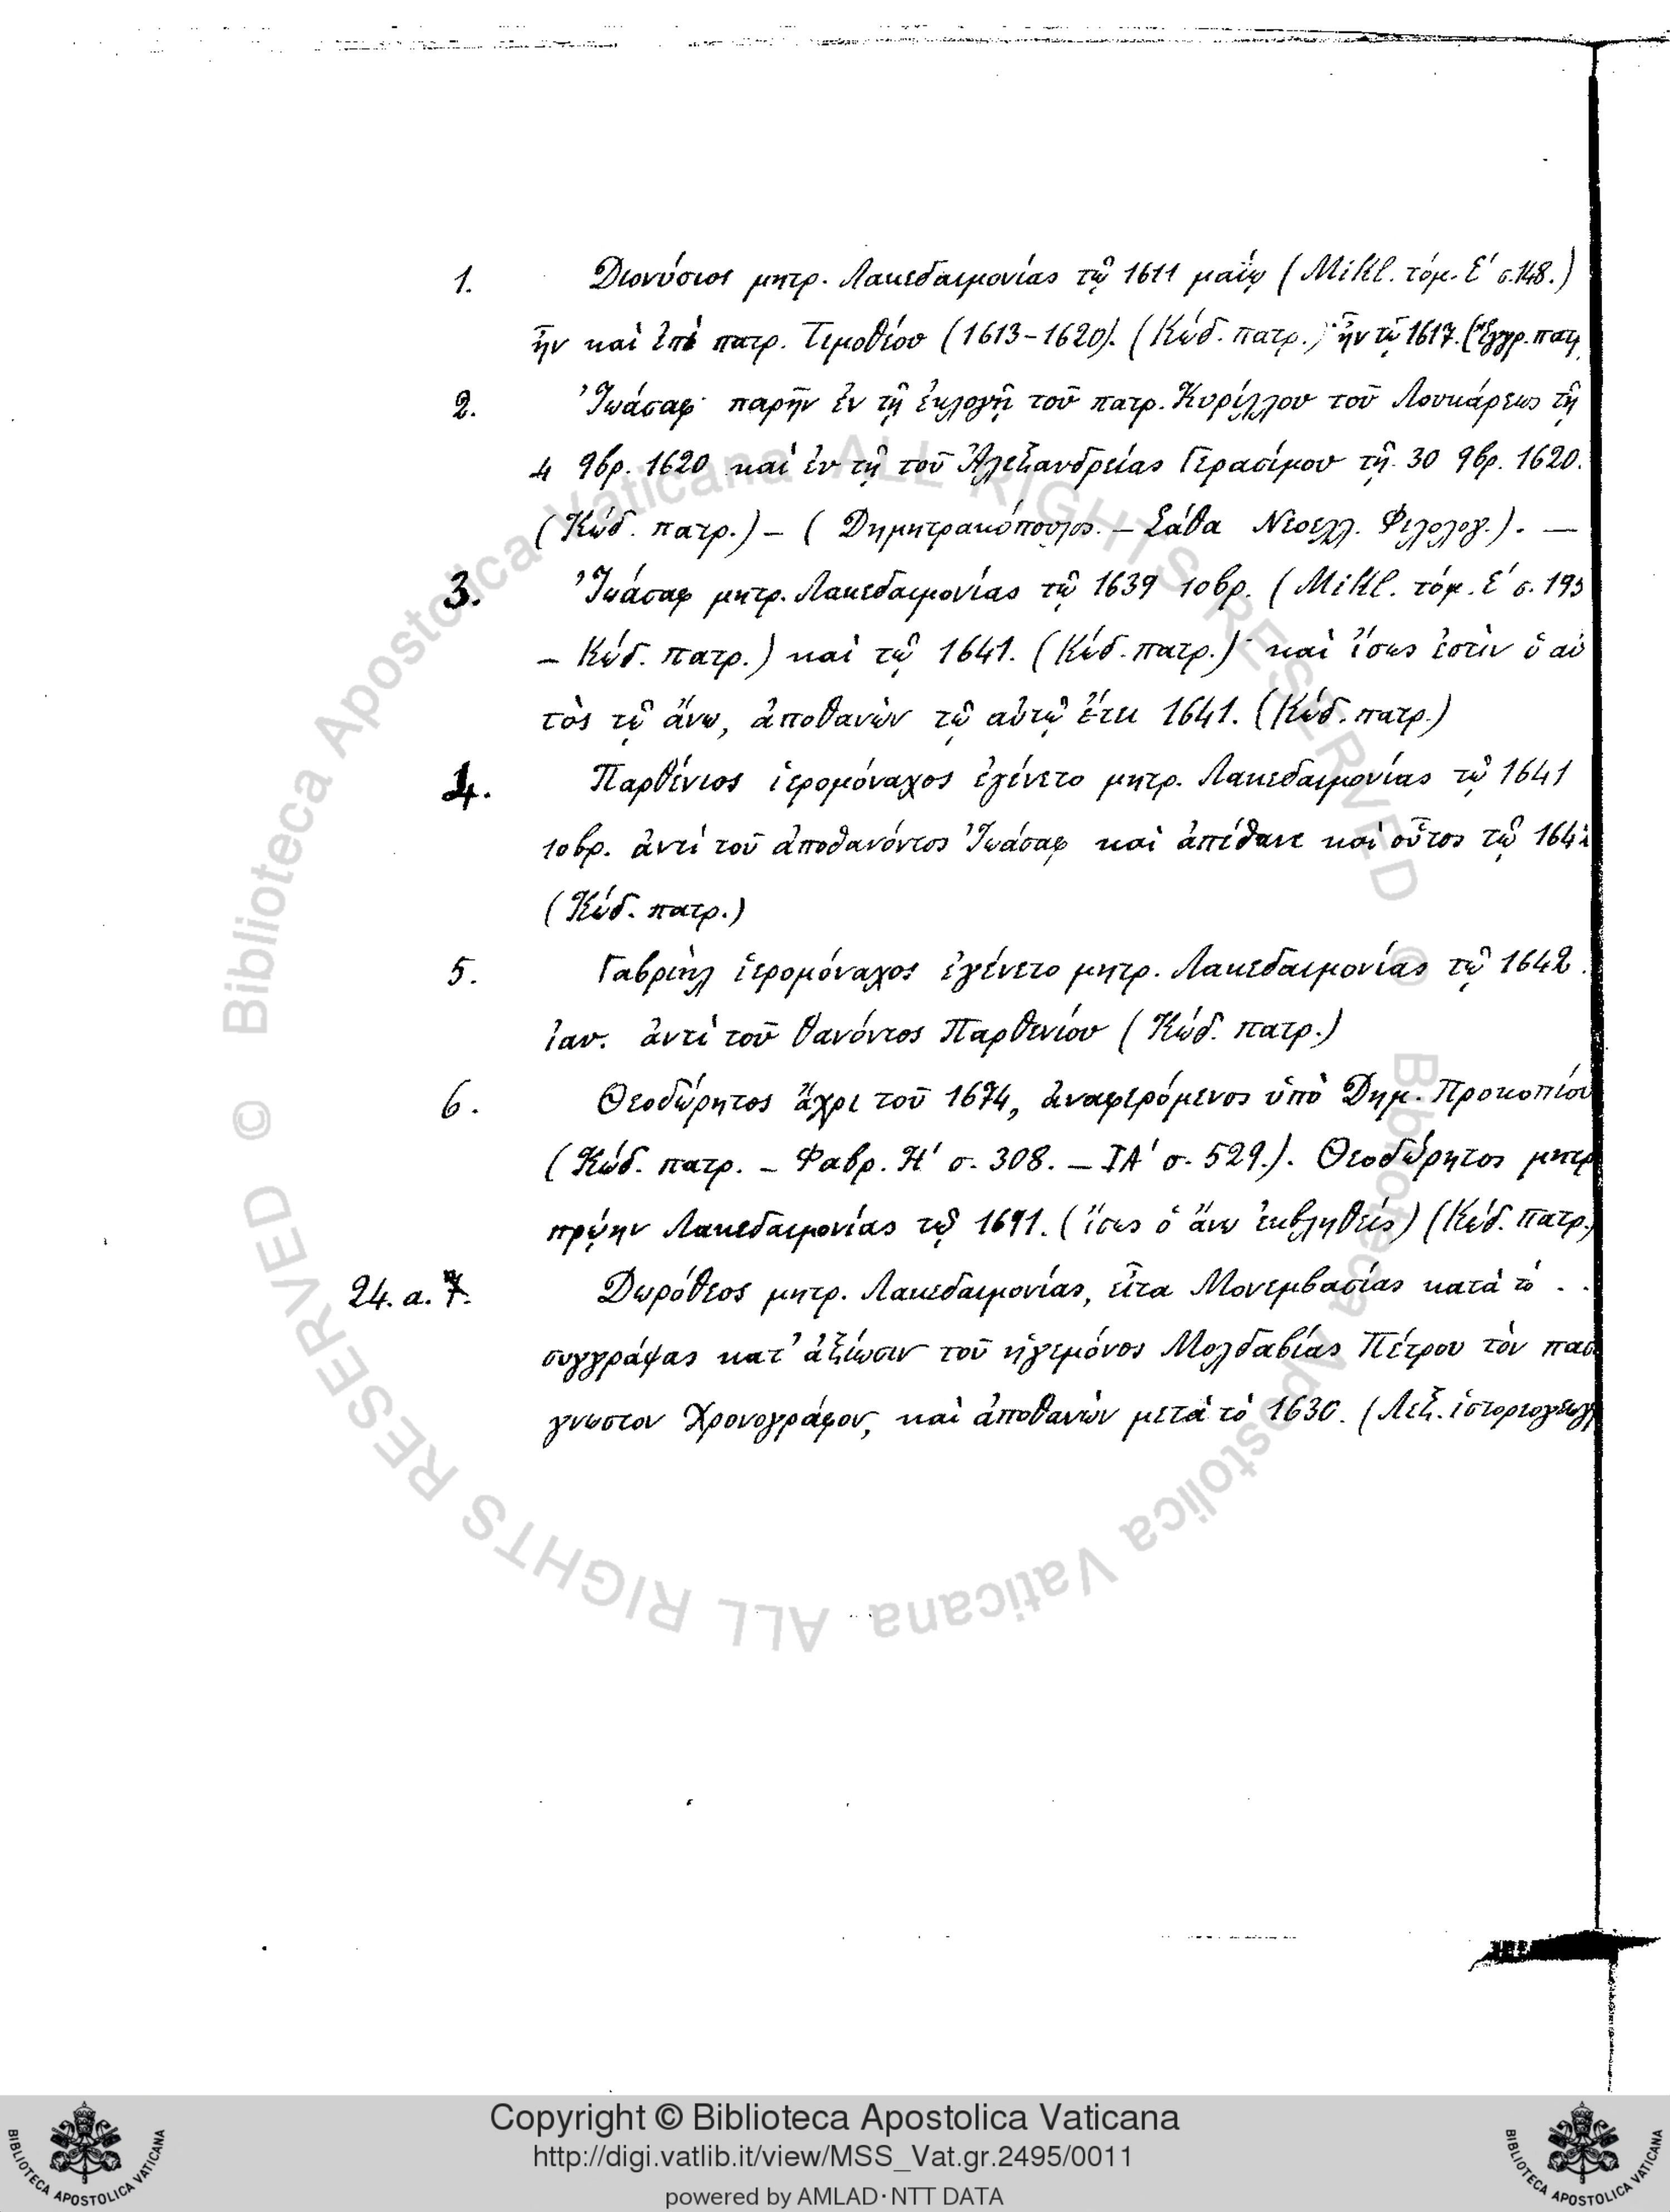 1. Διονύσιος μητρ. Λακεδαιμονίας τῷ 1611 μαΐῳ (Mikl. τόμ. Ε΄ σ. 148.)
ἦν καὶ ἐπὶ πατρ. Τιμοθέου (1613-1620). (Κώδ. πατρ.) ἦν τῷ 1617. (Ἔγγρ. πατρ
2. Ἰωάσαφ παρῆν ἐν τῇ ἐκλογῇ τοῦ πατρ. Κυρίλλου τοῦ Λουκάρεως τῇ
4 9βρ. 1620 καὶ ἐν τῇ τοῦ Ἀλεξανδρείας Γερασίμου τῇ 30 9βρ. 1620.
(Κώδ. πατρ.) – (Δημητρακόπουλος. – Σάθα Νεοελλ. Φιλολογ.). –
3. Ἰωάσαφ μητρ. Λακεδαιμονίας τῷ 1639 10βρ. (Mikl. τόμ. Ε΄ σ. 193
– Κώδ. πατρ.) καὶ τῷ 1641. (Κώδ. πατρ.) καὶ ἴσως ἐστὶν ὁ αὐ
τὸς τῷ ἄνω, ἀποθανὼν τῷ αὐτῷ ἔτει 1641. (Κώδ. πατρ.)
4. Παρθένιος ἱερομόναχος ἐγένετο μητρ. Λακεδαιμονίας τῷ 1641
10βρ. ἀντὶ τοῦ ἀποθανόντος Ἰωάσαφ καὶ ἀπέθανε καὶ οὗτος τῷ 164
(Κώδ. πατρ.)
5. Γαβριὴλ ἱερομόναχος ἐγένετο μητρ. Λακεδαιμονίας τῷ 1642.
ἰαν. ἀντὶ τοῦ θανόντος Παρθενίου (Κώδ. πατρ.)
6. Θεοδώρητος ἄχρι τοῦ 1674, ἀναφερόμενος ὑπὸ Δημ. Προκοπίου
(Κώδ. πατρ. – Φαβρ. Η΄ σ. 308. – ΙΑ΄ σ. 529.). Θεοδώρητος μητρ
πρῴην Λακεδαιμονίας τῷ 1691. (ἴσως ὁ ἄνω ἐκβληθείς) (Κώδ. πατρ.)
24.a.7. Δωρόθεος μητρ. Λακεδαιμονίας, εἶτα Μονεμβασίας κατὰ τὸ . .
συγγράψας κατ' ἀξίωσιν τοῦ ἡγεμόνος Μολδαβίας Πέτρου τὸν πασ
γνωστον Χρονογράφον, καὶ ἀποθανὼν μετὰ τὸ 1630. (Λεξ. ἱστοριογεωγ
© Biblioteca Apostolica Vaticana ALL RIGHTS RESERVED © Biblioteca Apostolica Vaticana ALL RIGHTS RESERVED
Copyright © Biblioteca Apostolica Vaticana
http://digi.vatlib.it/view/MSS_Vat.gr.2495/0011
powered by AMLAD·NTT DATA
BIBLIOTECA APOSTOLICA VATICANA
BIBLIOTECA APOSTOLICA VATICANA